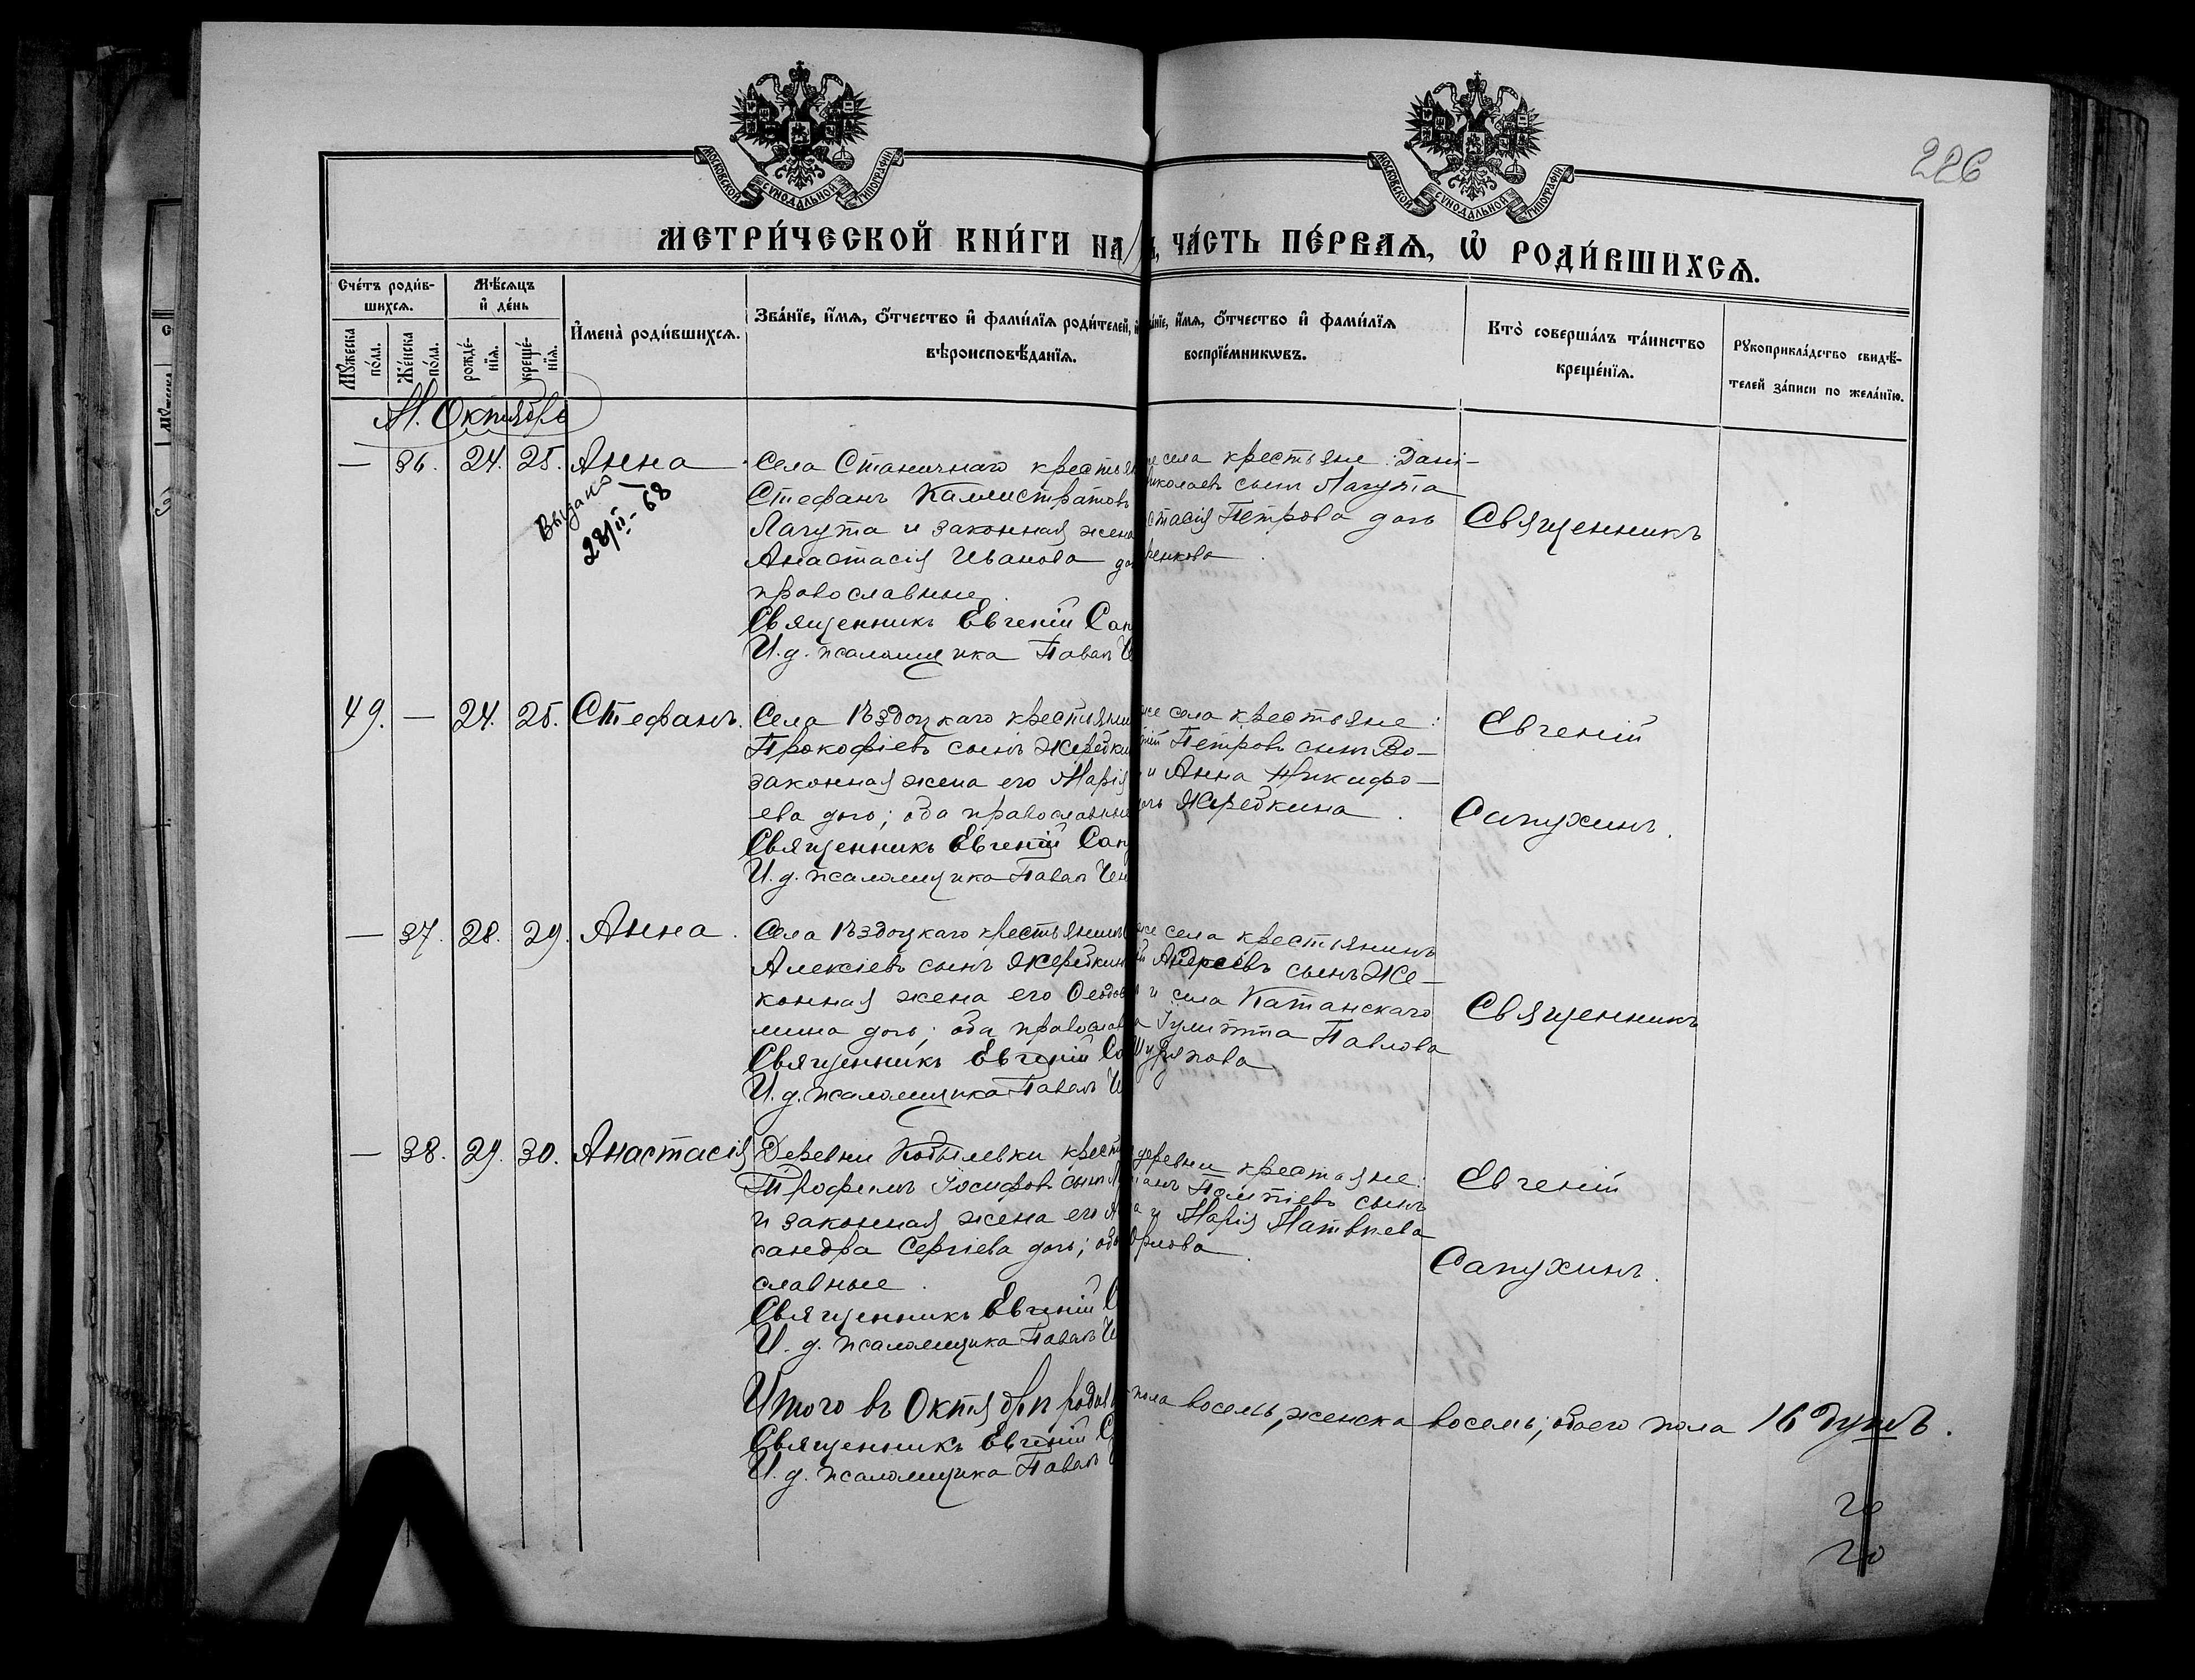 226
МОСКОВСКОЙ СУНОДАЛЬНОЙ ТИПОГРАФІИ
МОСКОВСКОЙ СУНОДАЛЬНОЙ ТИПОГРАФІИ
МЕТРИ́ЧЕСКОЙ КНИ́ГИ НА
ЧА́СТЬ ПЕ́РВАЯ, Ѡ РОДИ́ВШИХСЯ.
Сче́тъ роди́в-
шихся.
Мѣ́сяцъ
и де́нь
Му́жеска
по́ла.
Же́нска
по́ла.
рожде́-
нїя.
креще́-
нїя.
И҆мена̀ роди́вшихся.
Зва́нїе, и҆мя, о҆́тчество и҆ фами́лїя роди́телей,
вѣроисповѣ́данїя.
и҆мя, о҆́тчество и҆ фами́лїя
воспрїе́мниковъ.
Кто̀ соверша́лъ та́инство
креще́нїя.
Рукоприкла́дство свидѣ́-
телей за́писи по жела́нїю.
М. Октябрь
— 36. 24. 25. Анна
Выдано
28/II-68
Села Станичнаго крестья
Стефанъ Каллистратовъ
Лагута и законная жена
Анастасія Иванова
православные.
Священникъ Евгеній Сап
И. д. псаломщика Павелъ
села крестьяне: Дані-
сынъ Лагута
Петрова дочь
Священникъ
49. — 24. 25. Стефанъ.
Села Ѣздоцкаго крестьяни
Прокофіевъ сынъ Жеребки
законная жена его Марія
ева дочь; оба православные
Священникъ Евгеній Сап
И. д. псаломщика Павелъ Чен
села крестьяне:
Петровъ сынъ Во-
и Анна Никифо-
Жеребкина.
Евгеній
Сапухинъ.
— 37. 28. 29. Анна.
Села Ѣздоцкаго крестьянинъ
Алексіевъ сынъ Жеребкин
конная жена его Ѳеодо
мина дочь; оба православ
Священникъ Евгеній Са
И. д. псаломщика Павелъ
же села крестьянинъ
Андреевъ сынъ Же-
и села Катанскаго
Іулитта Павлова
Священникъ
— 38. 29. 30. Анастасія
Деревни Кобылевки крест
Трофимъ Іосифовъ сынъ
и законная жена его
сандра Сергіева дочь; оба
славные.
Священникъ Евгеній С
И. д. псаломщика Павелъ
деревни крестьяне:
сынъ
и Марія Матвѣева
Орлова.
Евгеній
Сапухинъ.
Итого въ Октябрѣ родил
пола восемь, женска восемь; обоего пола 16 душъ.
Священникъ Евгеній С
И. д. псаломщика Павелъ